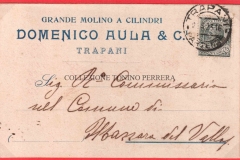 GRANDE MOLINO A CILINDRI
DOMENICO AULA & C.
TRAPANI
TRAPANI
COLLEZIONE TONINO PERRERA
Sig R. Commissario
nel Comune di
Mazzara del Vallo